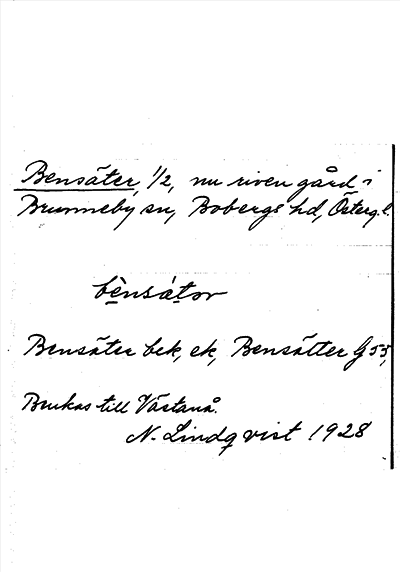 Bensäter, 1/2, nu riven gård i
Brunneby sn, Bobergs hd, Österg. l.
bènsátər
Bensäter bek, ek, Bensätter G 55,
Brukas till Västanå.
N. Lindqvist 1928